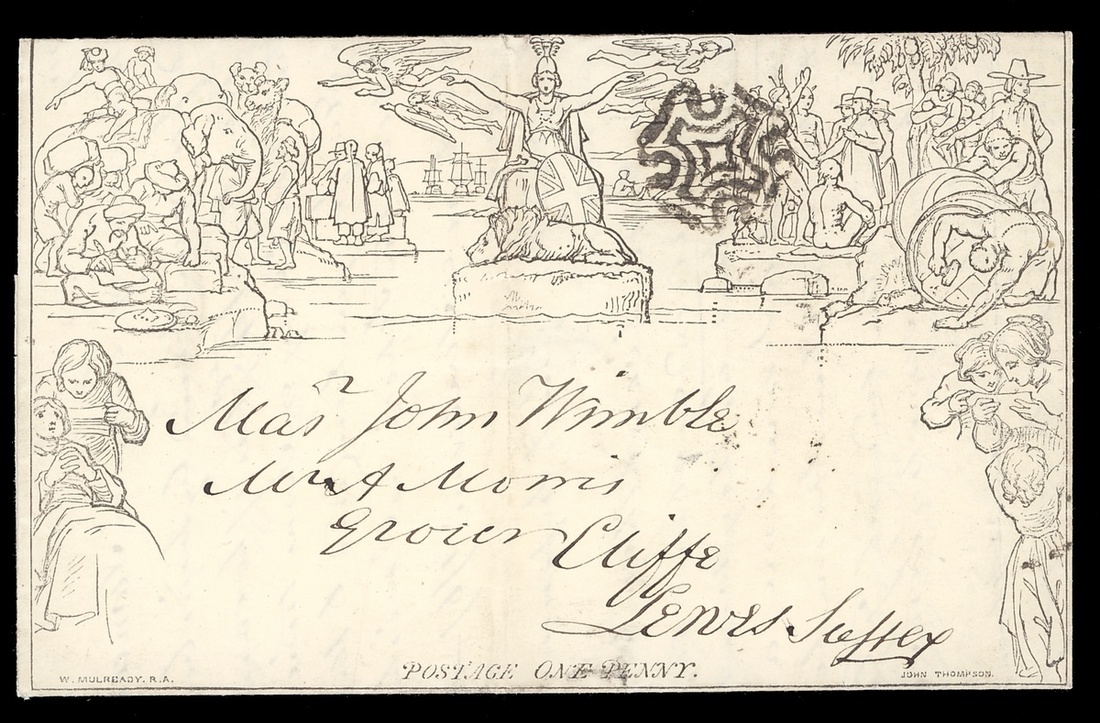 Mas^r John Wimble
Mr A Morris
Grocer Cliffe
Lewes Sussex
POSTAGE ONE PENNY.
W. MULREADY. R.A.
JOHN THOMPSON.